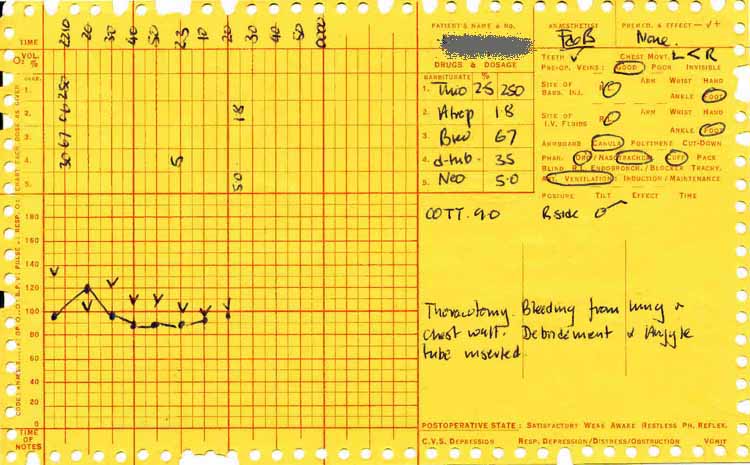 TIME 2210 20 30 40 50 23 10 20 30 40 50 0000
PATIENT'S NAME & No. ANAESTHETIST PREMED. & EFFECT — √ +
None.
O₂ VOL. %
DRUGS & DOSAGE
TEETH ✓ CHEST MOVT. L < R
PRE-OP. VEINS: GOOD POOR INVISIBLE
BARBITURATE %
1. Thio 2.5 250
SITE OF BARB. INJ. ARM WRIST HAND
ANKLE FOOT
2. Atrop 18
3. Brev 67
SITE OF I.V. FLUIDS ARM WRIST HAND
ANKLE FOOT
ARMBOARD CANULA POLYTHENE CUT-DOWN
4. d-tub. 35
PHAR. ORO/NASOTRACHEAL CUFF PACK
BLIND R.L. ENDOBRONCH./BLOCKER TRACHY.
5. Neo 5.0
ART. VENTILATION: INDUCTION/MAINTENANCE
1.
2.
3.
4.
5.
250
67
30
5
18
50
POSTURE TILT EFFECT TIME
COTT. 9.0 R side
180
160
140
120
100
80
60
40
20
0
Thoracotomy. Bleeding from lung &
chest wall. Debridement & Argyle
tube inserted.
TIME OF NOTES
POSTOPERATIVE STATE: SATISFACTORY WEAK AWAKE RESTLESS PH. REFLEX.
C.V.S. DEPRESSION RESP. DEPRESSION/DISTRESS/OBSTRUCTION VOMIT